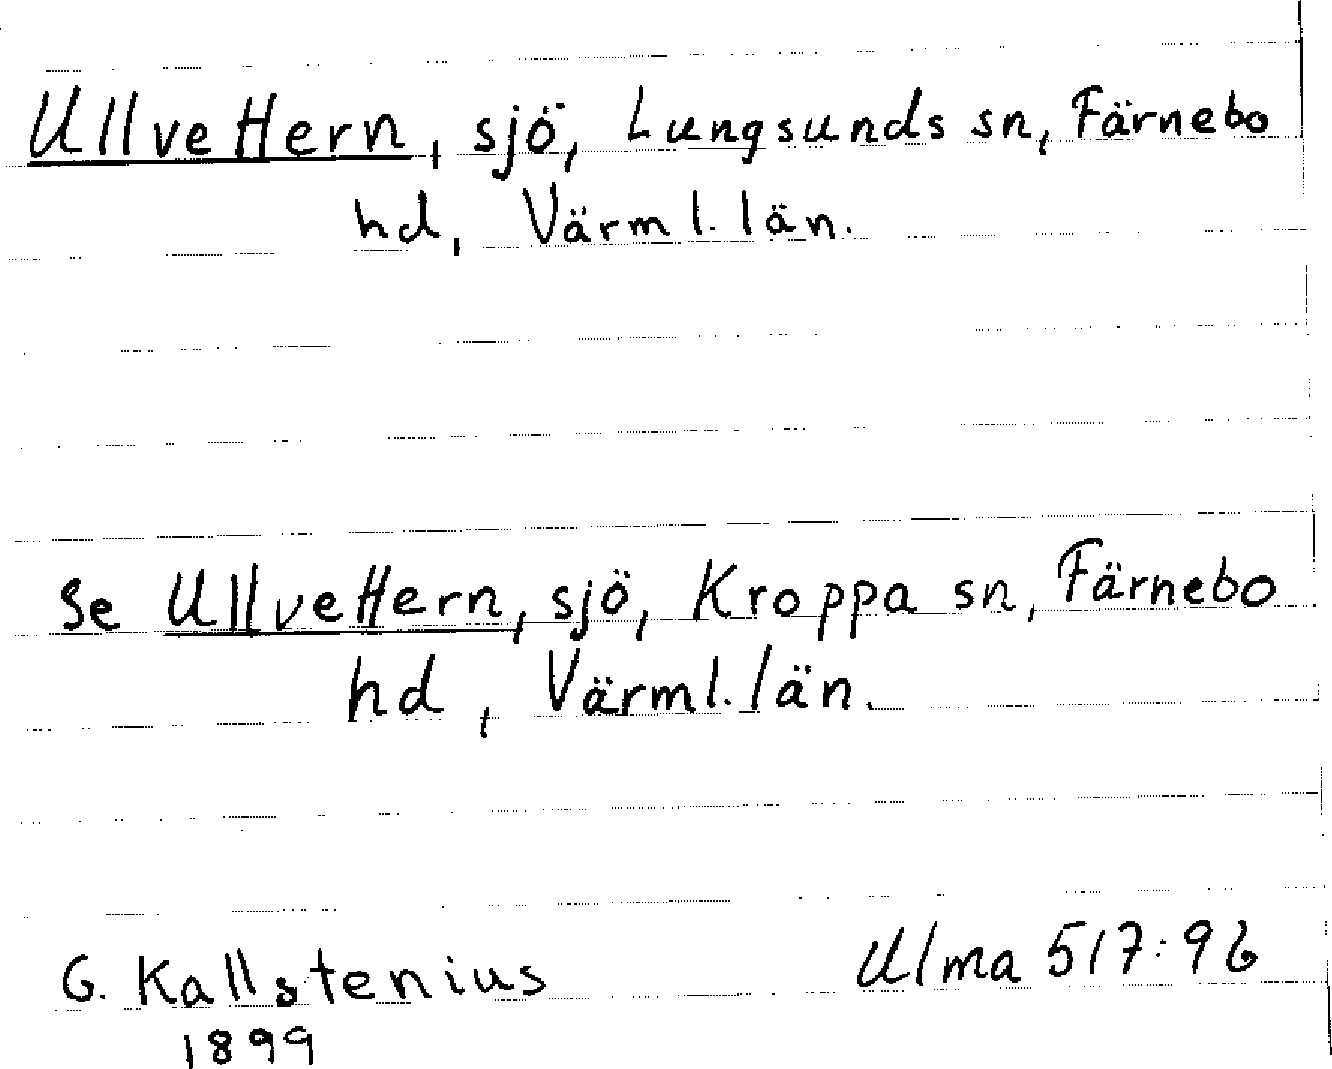 Ullvettern, sjö, Lungsunds sn, Färnebo
hd, Värml. län.
Se Ullvettern, sjö, Kroppa sn, Färnebo
hd, Värml. län.
G. Kallstenius
Ulma 517:96
1899